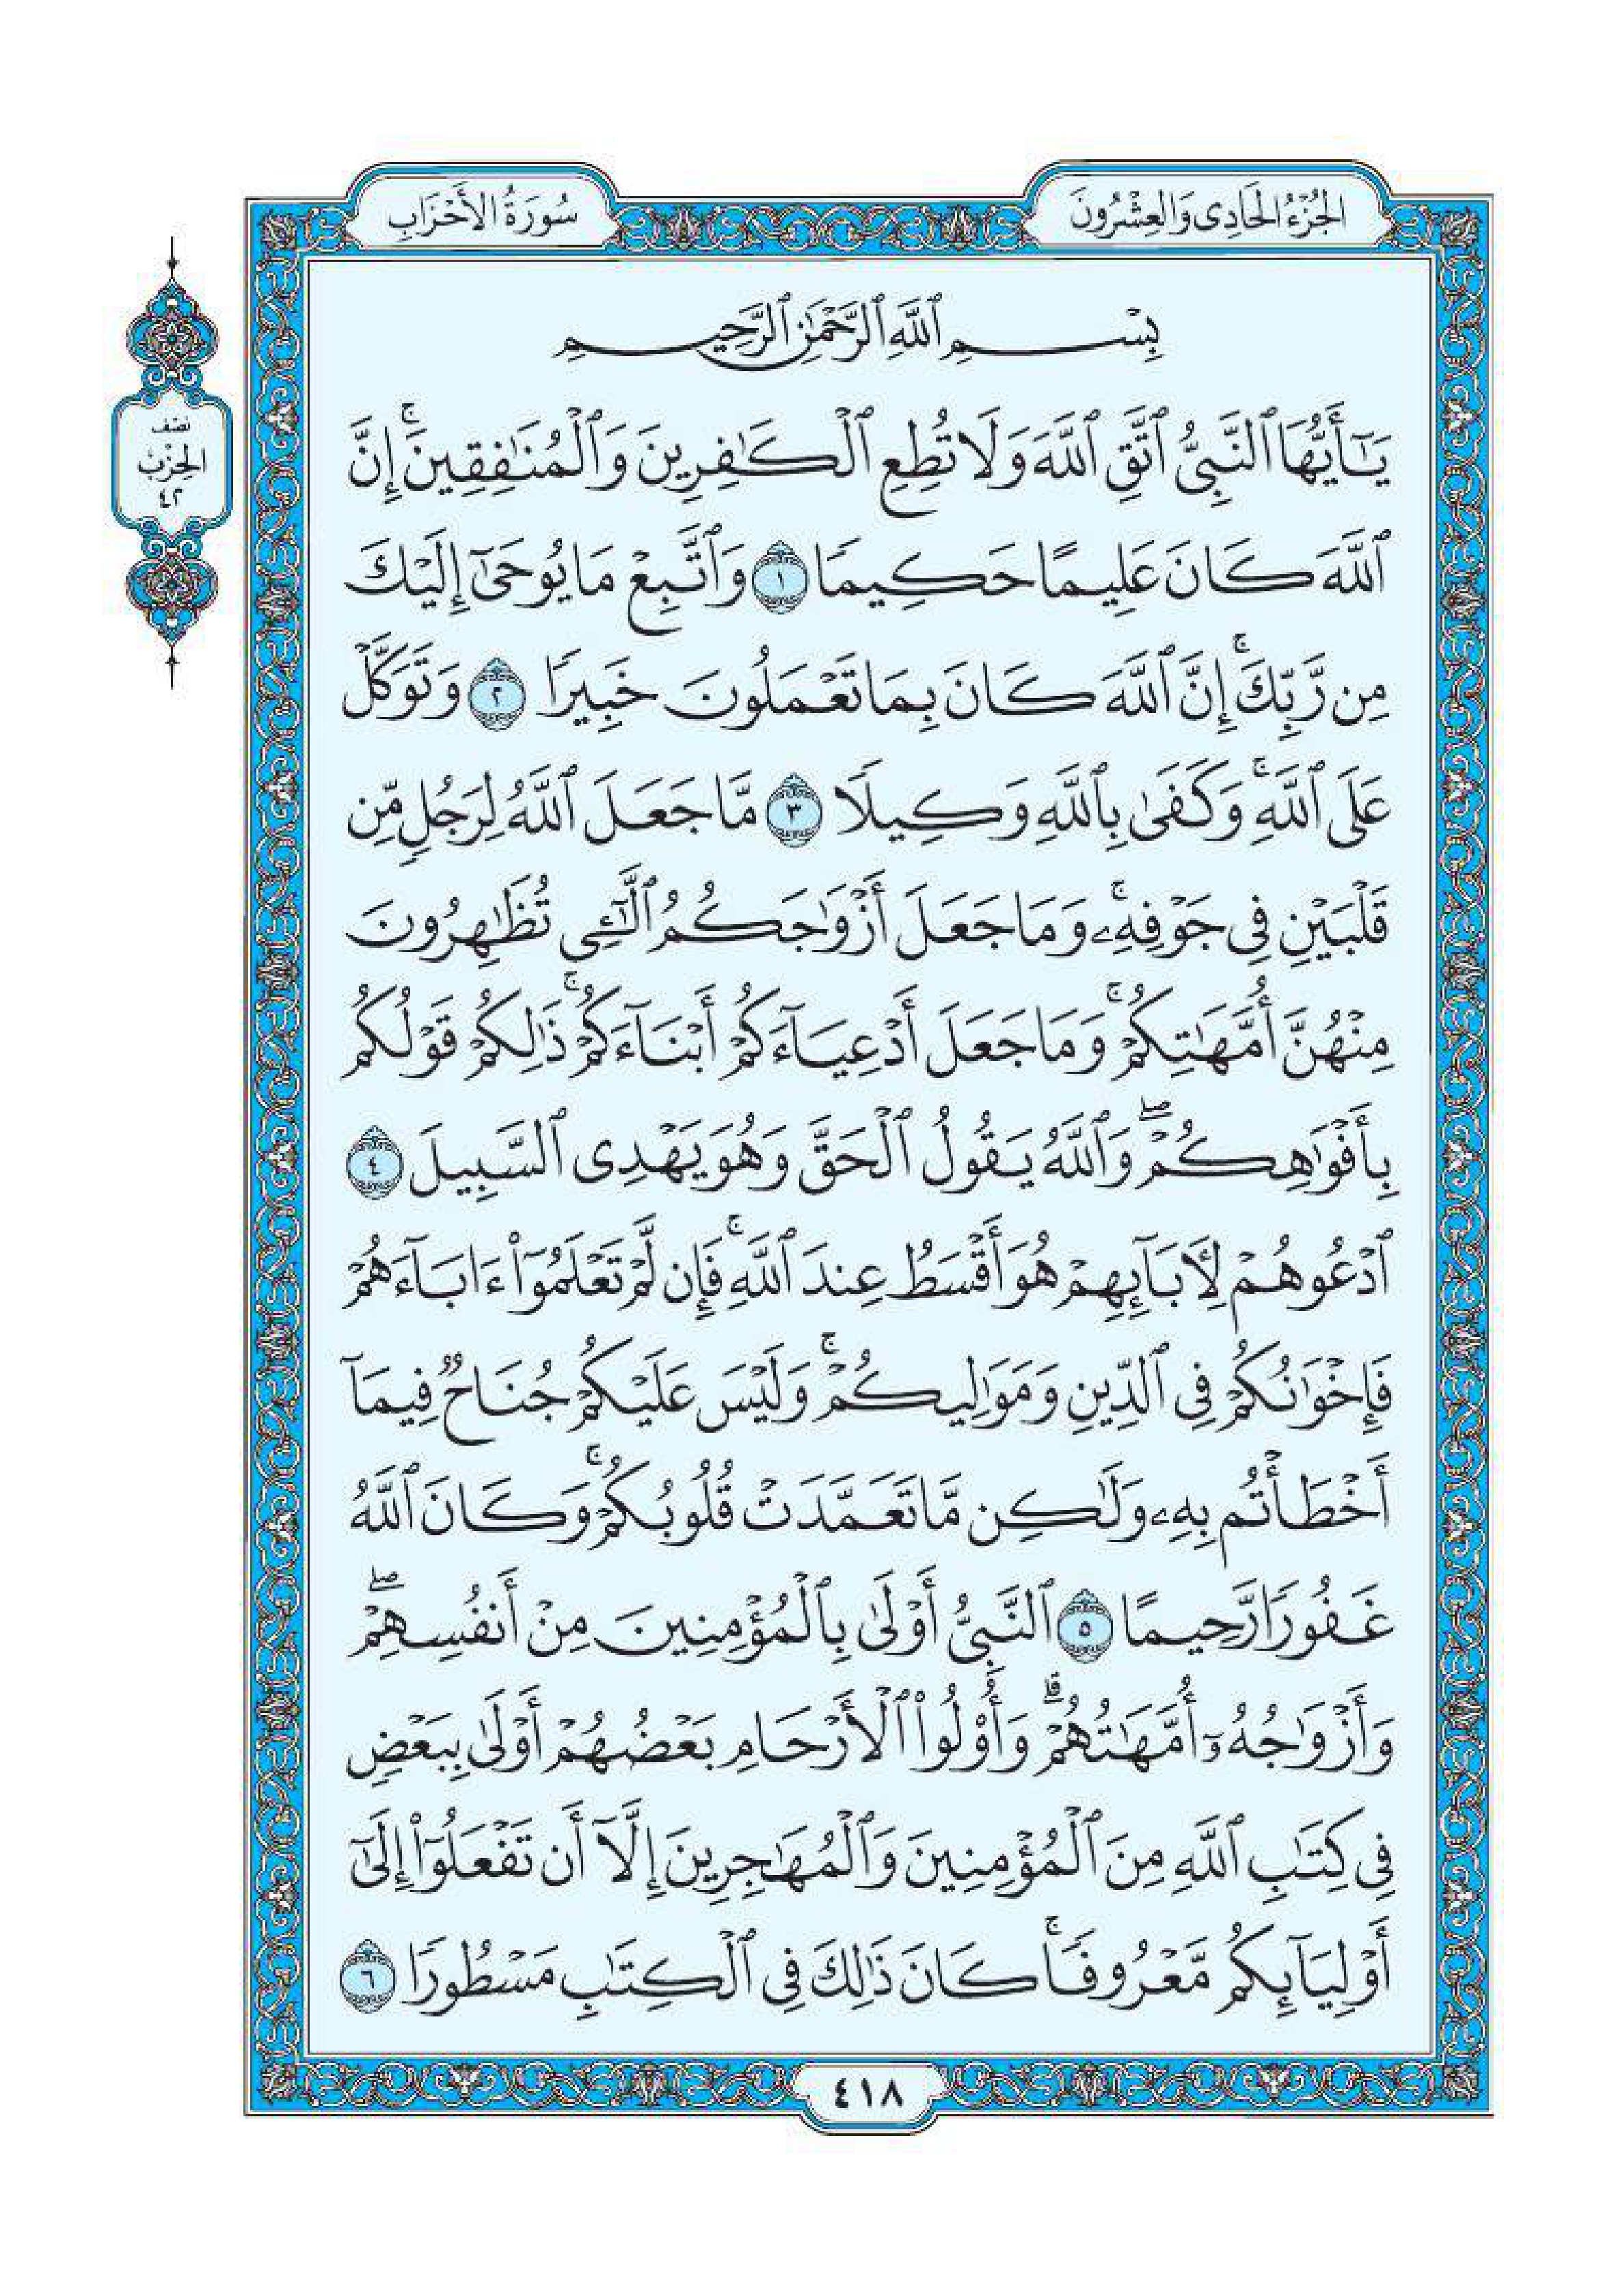 الجُزْءُ الحَادِى وَالعِشْرُونَ
سُورَةُ الأَحْزَابِ
نصف
الحِزْب
٤٢
بِسْمِ ٱللَّهِ ٱلرَّحْمَٰنِ ٱلرَّحِيمِ
يَـٰٓأَيُّهَا ٱلنَّبِىُّ ٱتَّقِ ٱللَّهَ وَلَا تُطِعِ ٱلْكَـٰفِرِينَ وَٱلْمُنَـٰفِقِينَ ۚ إِنَّ
ٱللَّهَ كَانَ عَلِيمًا حَكِيمًا ١ وَٱتَّبِعْ مَا يُوحَىٰٓ إِلَيْكَ
مِن رَّبِّكَ ۚ إِنَّ ٱللَّهَ كَانَ بِمَا تَعْمَلُونَ خَبِيرًا ٢ وَتَوَكَّلْ
عَلَى ٱللَّهِ ۚ وَكَفَىٰ بِٱللَّهِ وَكِيلًا ٣ مَّا جَعَلَ ٱللَّهُ لِرَجُلٍ مِّن
قَلْبَيْنِ فِى جَوْفِهِۦ ۚ وَمَا جَعَلَ أَزْوَٰجَكُمُ ٱلَّـٰٓـِٔى تُظَـٰهِرُونَ
مِنْهُنَّ أُمَّهَـٰتِكُمْ ۚ وَمَا جَعَلَ أَدْعِيَآءَكُمْ أَبْنَآءَكُمْ ۚ ذَٰلِكُمْ قَوْلُكُم
بِأَفْوَٰهِكُمْ ۖ وَٱللَّهُ يَقُولُ ٱلْحَقَّ وَهُوَ يَهْدِى ٱلسَّبِيلَ ٤
ٱدْعُوهُمْ لِـَٔابَآئِهِمْ هُوَ أَقْسَطُ عِندَ ٱللَّهِ ۚ فَإِن لَّمْ تَعْلَمُوٓا۟ ءَابَآءَهُمْ
فَإِخْوَٰنُكُمْ فِى ٱلدِّينِ وَمَوَٰلِيكُمْ ۚ وَلَيْسَ عَلَيْكُمْ جُنَاحٌ فِيمَآ
أَخْطَأْتُم بِهِۦ وَلَـٰكِن مَّا تَعَمَّدَتْ قُلُوبُكُمْ ۚ وَكَانَ ٱللَّهُ
غَفُورًا رَّحِيمًا ٥ ٱلنَّبِىُّ أَوْلَىٰ بِٱلْمُؤْمِنِينَ مِنْ أَنفُسِهِمْ ۖ
وَأَزْوَٰجُهُۥٓ أُمَّهَـٰتُهُمْ ۗ وَأُو۟لُوا۟ ٱلْأَرْحَامِ بَعْضُهُمْ أَوْلَىٰ بِبَعْضٍ
فِى كِتَـٰبِ ٱللَّهِ مِنَ ٱلْمُؤْمِنِينَ وَٱلْمُهَـٰجِرِينَ إِلَّآ أَن تَفْعَلُوٓا۟ إِلَىٰٓ
أَوْلِيَآئِكُم مَّعْرُوفًا ۚ كَانَ ذَٰلِكَ فِى ٱلْكِتَـٰبِ مَسْطُورًا ٦
٤١٨